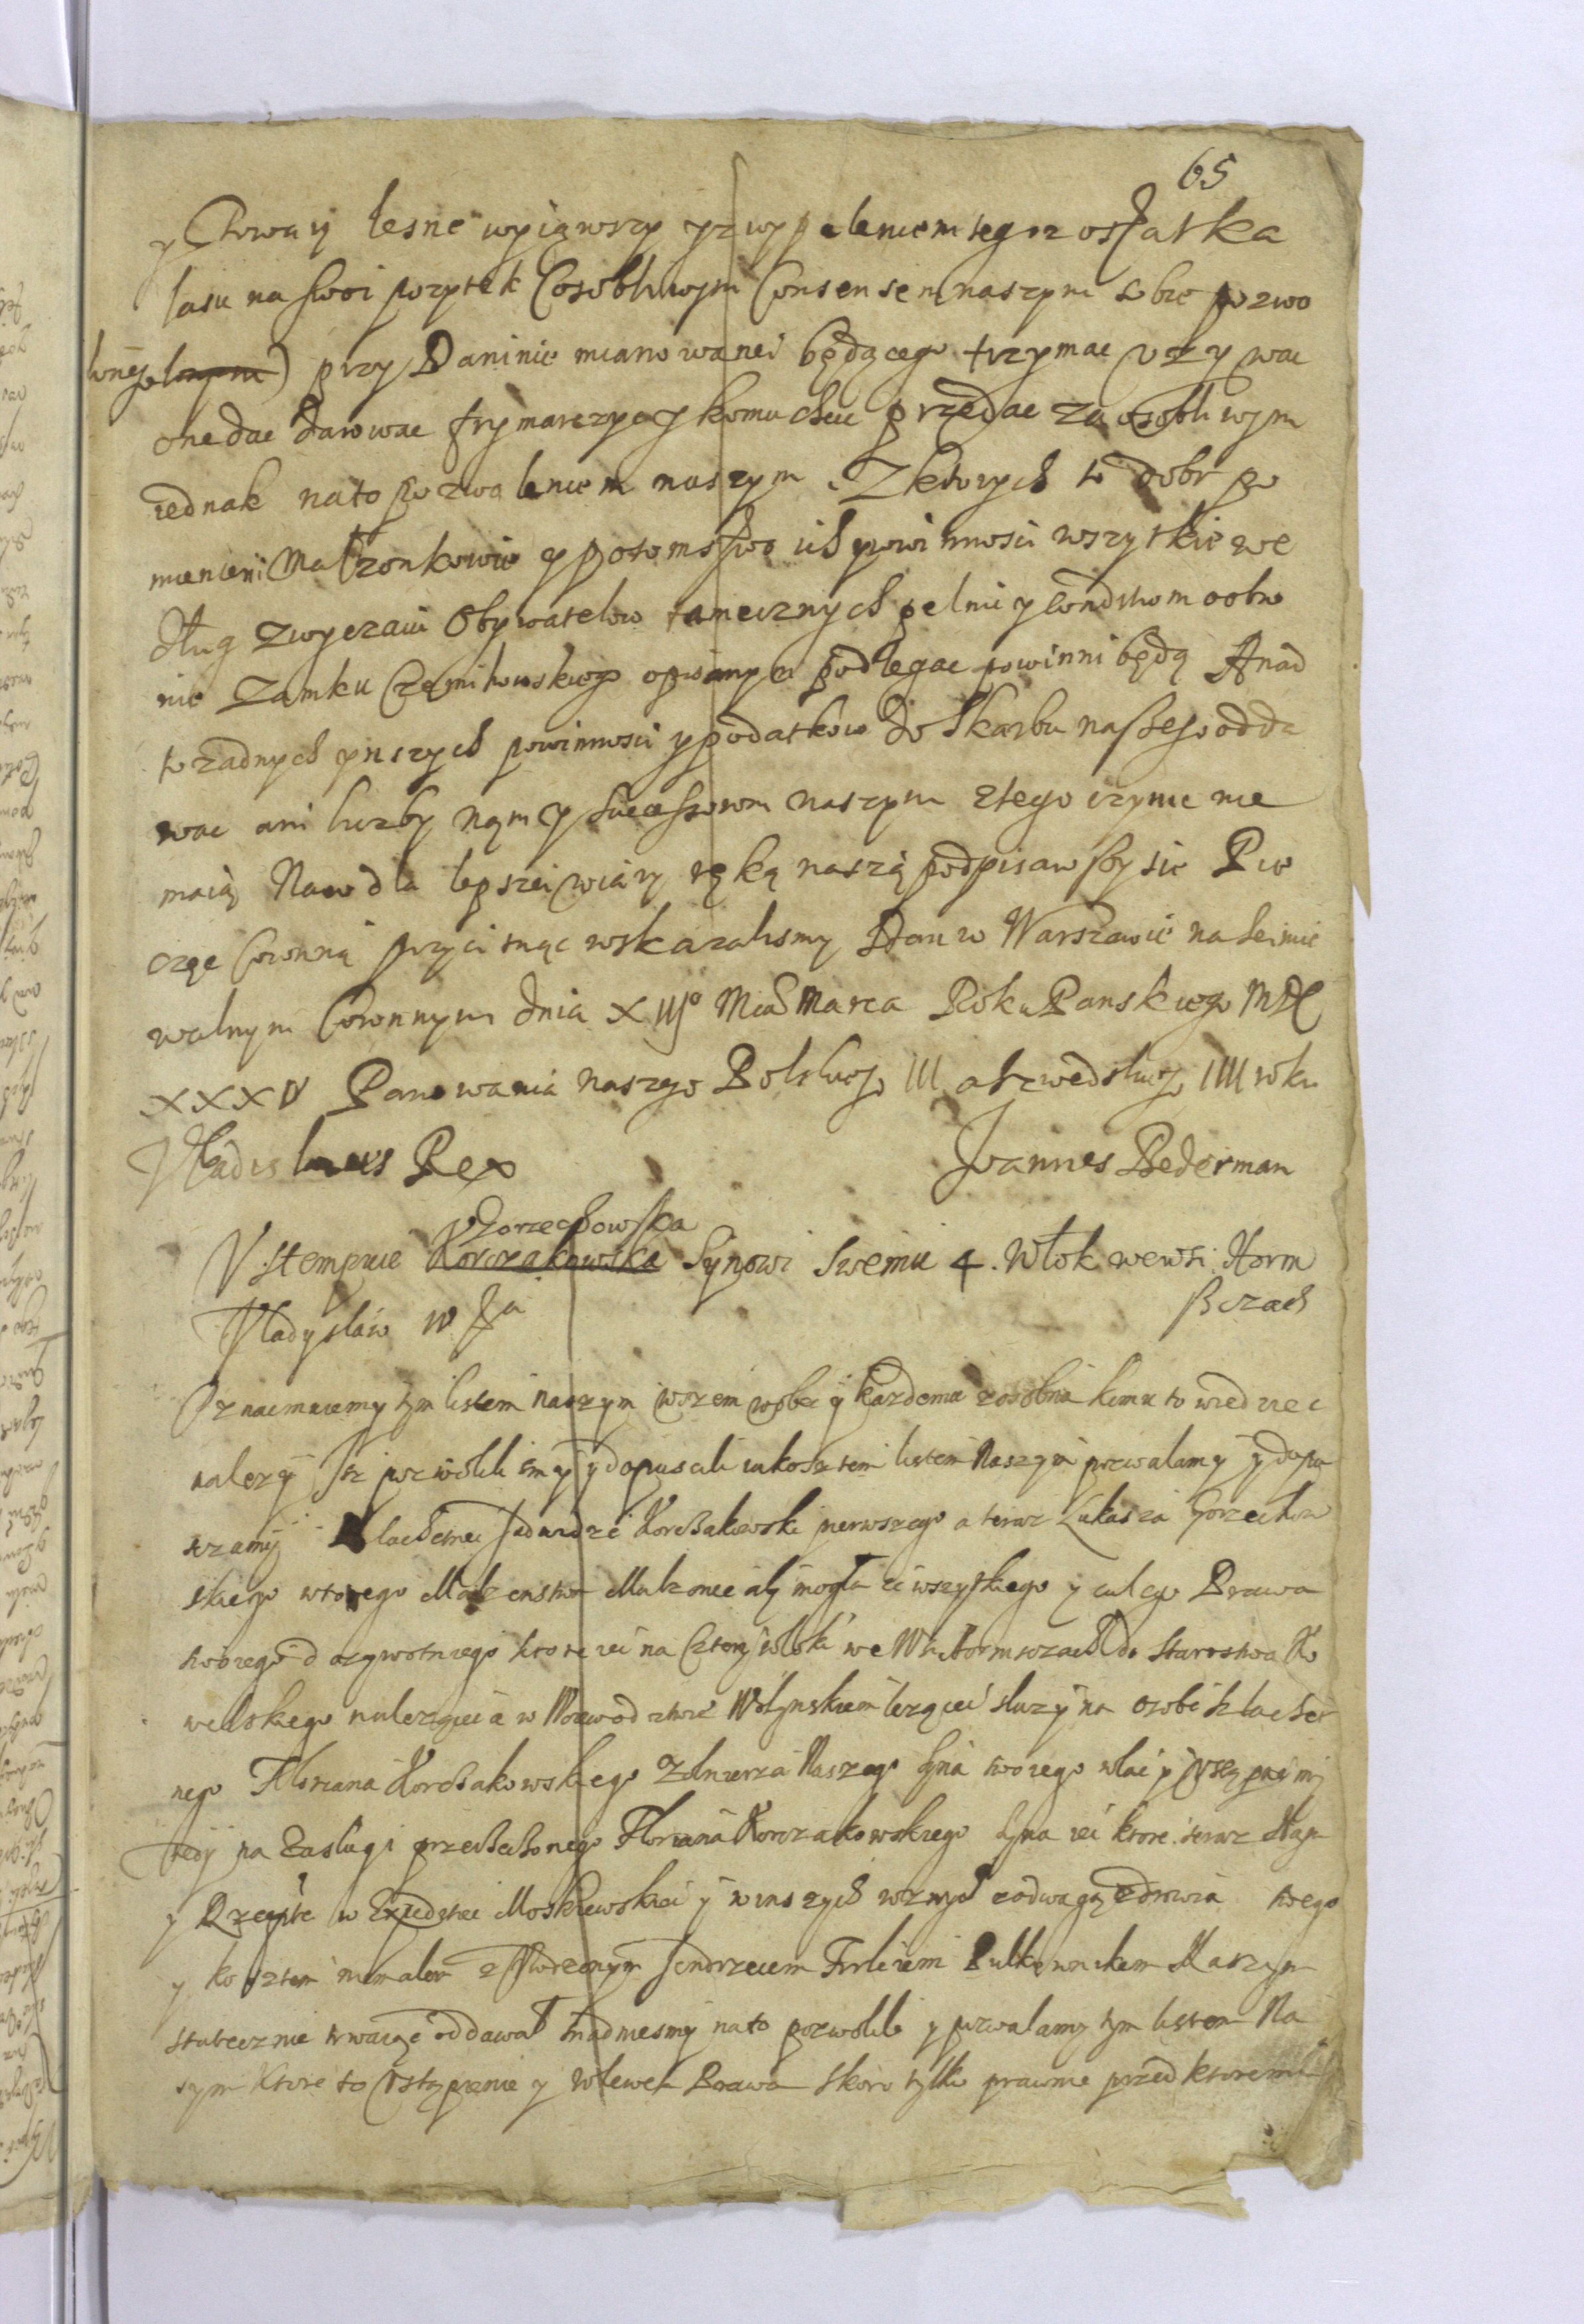 65
y Towary lesne wyiąwszy y z wypaleniem tegoz ostatka
lasu na swoi pozytek (osobliwym Consensem naszym sobie pozwo
lonego) przy Daninie mianowanei będącego trzymac uzywac
one dac darowac frymarczyc y komu chcic przedac za osobliwym
iednak na to pozwoleniem naszym. Z ktorych to dobr po
mienieni Małzonkowie y potomstwo ich powinnosci wszytkie we
dług zwyczaiu Obywatelow tamecznych pełnic y Conditiom
nie Zamku Czernihowskiego opisanym podlegac powinni będą A nad
to zadnych inszych powinnosci y podatkow do Skarbu naszego odda
wac ani liczby nąm y Successorom naszym z tego czynic nie
maią Na co dla lepszei wiary ręką naszą podpisawszy sie Pie
częc Coronną przycisnąc wskazalismy Dan w Warszawie na seimie
walnym Coronnym dnia XIIIo Mca Marca Roku Panskiego MDC
XXXV Panowania naszego Polskiego III a szwedzkiego IIII roku
Vladislaus Rex Joannes Bederman
Gorzechowska
Vstempuie Korczakowska Synowi swemu 4. Włok we wsi Horm
sczach
Vladysław IV
Oznaimuiemy tym listem naszym wszem wobec y kazdemu zosobna komu to wiedziec
nalezy Isz pozwolilismy y dopuscili iakosz tem listem Naszym pozwalamy y dopu
szczamy Szlachetnei Jadwidze Korczakowski pierwszego a teraz Łukasza Gorzechow
skiego wtorego Małzenstwa Malzonce aby mogła ze wszystkiego y całego Prawa
swoiego dozywotniego ktore iei na Cztery włoki we Wsi Hormsczach do Starostwa Ko
welskiego nalezącei a w Woiewodztwie Wołynskiem lezącei sluzy na osobe szlachet
nego Floriana Korczakowskiego Zolnierza Naszego syna swoiego
tedy na Zaslugi przerzeczonego Floriana Korczakowskiego syna iei ktore teraz Nąm
y Rzeptte w Expeditiei Moskiewskiei y w inszych z odwagą zdrowia swego
y kosztem niemalem z Vrodzonym Jendrzeiem Firleiem Pulkownikem Naszym
statecznie trwaiąc oddawał na to pozwolili y pozwalamy tym listem Na
szym Ktore to Vstąpienie y wlewek Prawa skoro tylko prawnie przed ktoremi